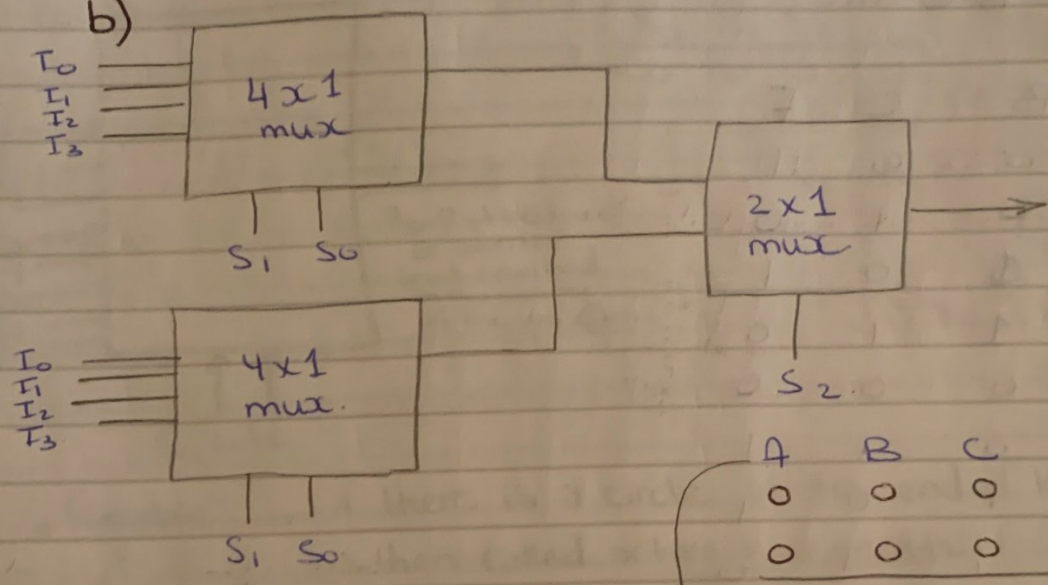 b)
I0
I1
I2
I3
4x1
mux
S1 S0
2x1
mux
S2.
I0
I1
I2
I3
4x1
mux.
S1 S0
A B C
0 0 0
0 0 0